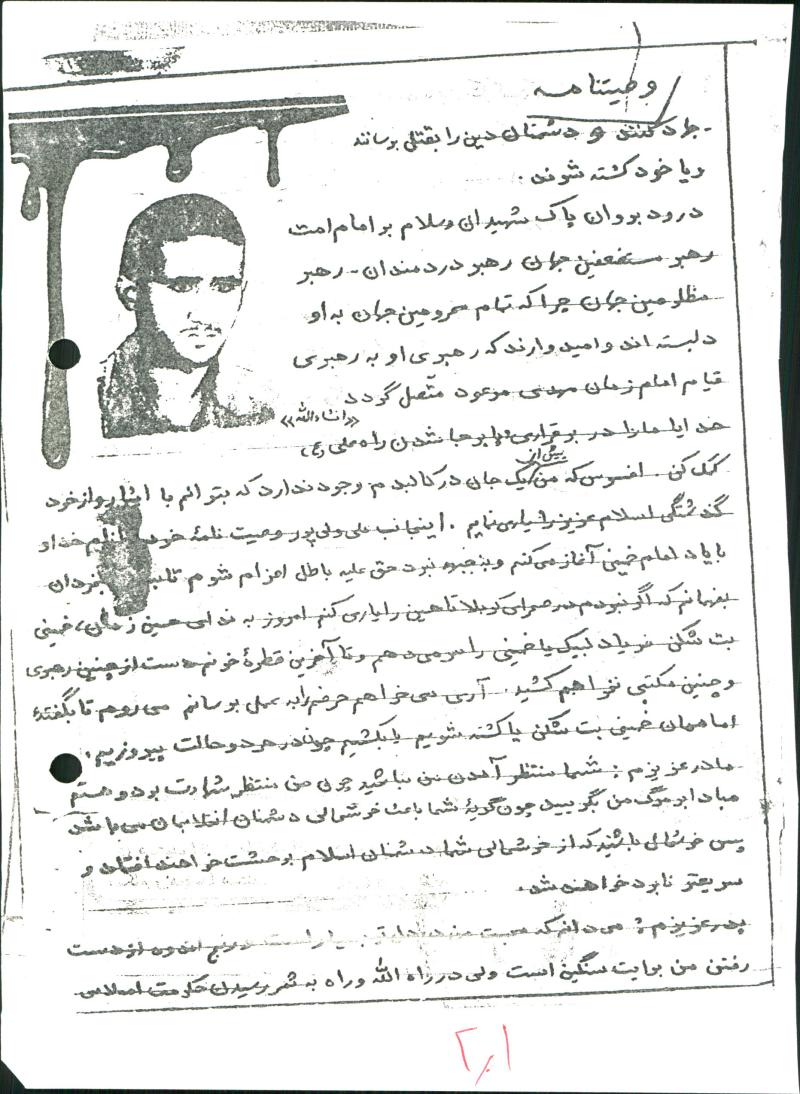 وصیتنامه
جهاد کنند و دشمنان دین را بقتل برسانند
و یا خود کشته شوند .
درود بروان پاک شهیدان و سلام بر امام امت
رهبر مستضعفین جهان رهبر دردمندان - رهبر
مظلومین جهان چرا که تمام محرومین جهان به او
دلبسته اند و امیدوارند که رهبری او به رهبری
قیام امام زمان مهدی موعود متّصل گردد
«انشاءالله»
خدایا ما را در برقراری و پا برجا شدن راه علی (ع)
کمک کن . افسوس که من بیش از یک جان در کالبدم وجود ندارد که بتوانم با ایثار و از خود
گذشتگی اسلام عزیز را یاری نمایم . اینجانب علی ولی پور وصیت نامهٔ خود بنام خدا و
با یاد امام خمینی آغاز می کنم و به جبهه نبرد حق علیه باطل اعزام شوم تا
بفهمانم که اگر نبودم در صحرای کربلا تا حسین را یاری کنم امروز به ندای حسین زمان، خمینی
بت شکن فریاد لبیک یا خمینی را سر می دهم و تا آخرین قطرهٔ خونم دست از چنین رهبری
و چنین مکتبی نخواهم کشید . آری می خواهم حرفم را به عمل برسانم می روم تا بگفتهٔ
اماممان خمینی بت شکن یا کشته شویم یا بکشیم چون در هر دو حالت پیروزیم .
مادر عزیزم : شما منتظر آمدن من نباشید چون من منتظر شهادت بود و هستم
مبادا بر مرگ من بگریید چون گریهٔ شما باعث خوشحالی دشمنان انقلابمان می باشد
پس خوشحال باشید که از خوشحالی شما دشمنان اسلام بوحشت خواهند افتاد و
سریعتر نابود خواهند شد .
پدر عزیزم : می دانم که محبت من در بسیار است و رنج اندوه از دست
رفتن من برایت سنگین است ولی در راه الله و راه به ثمر رسیدن حکومت اسلامی
۱ر۲